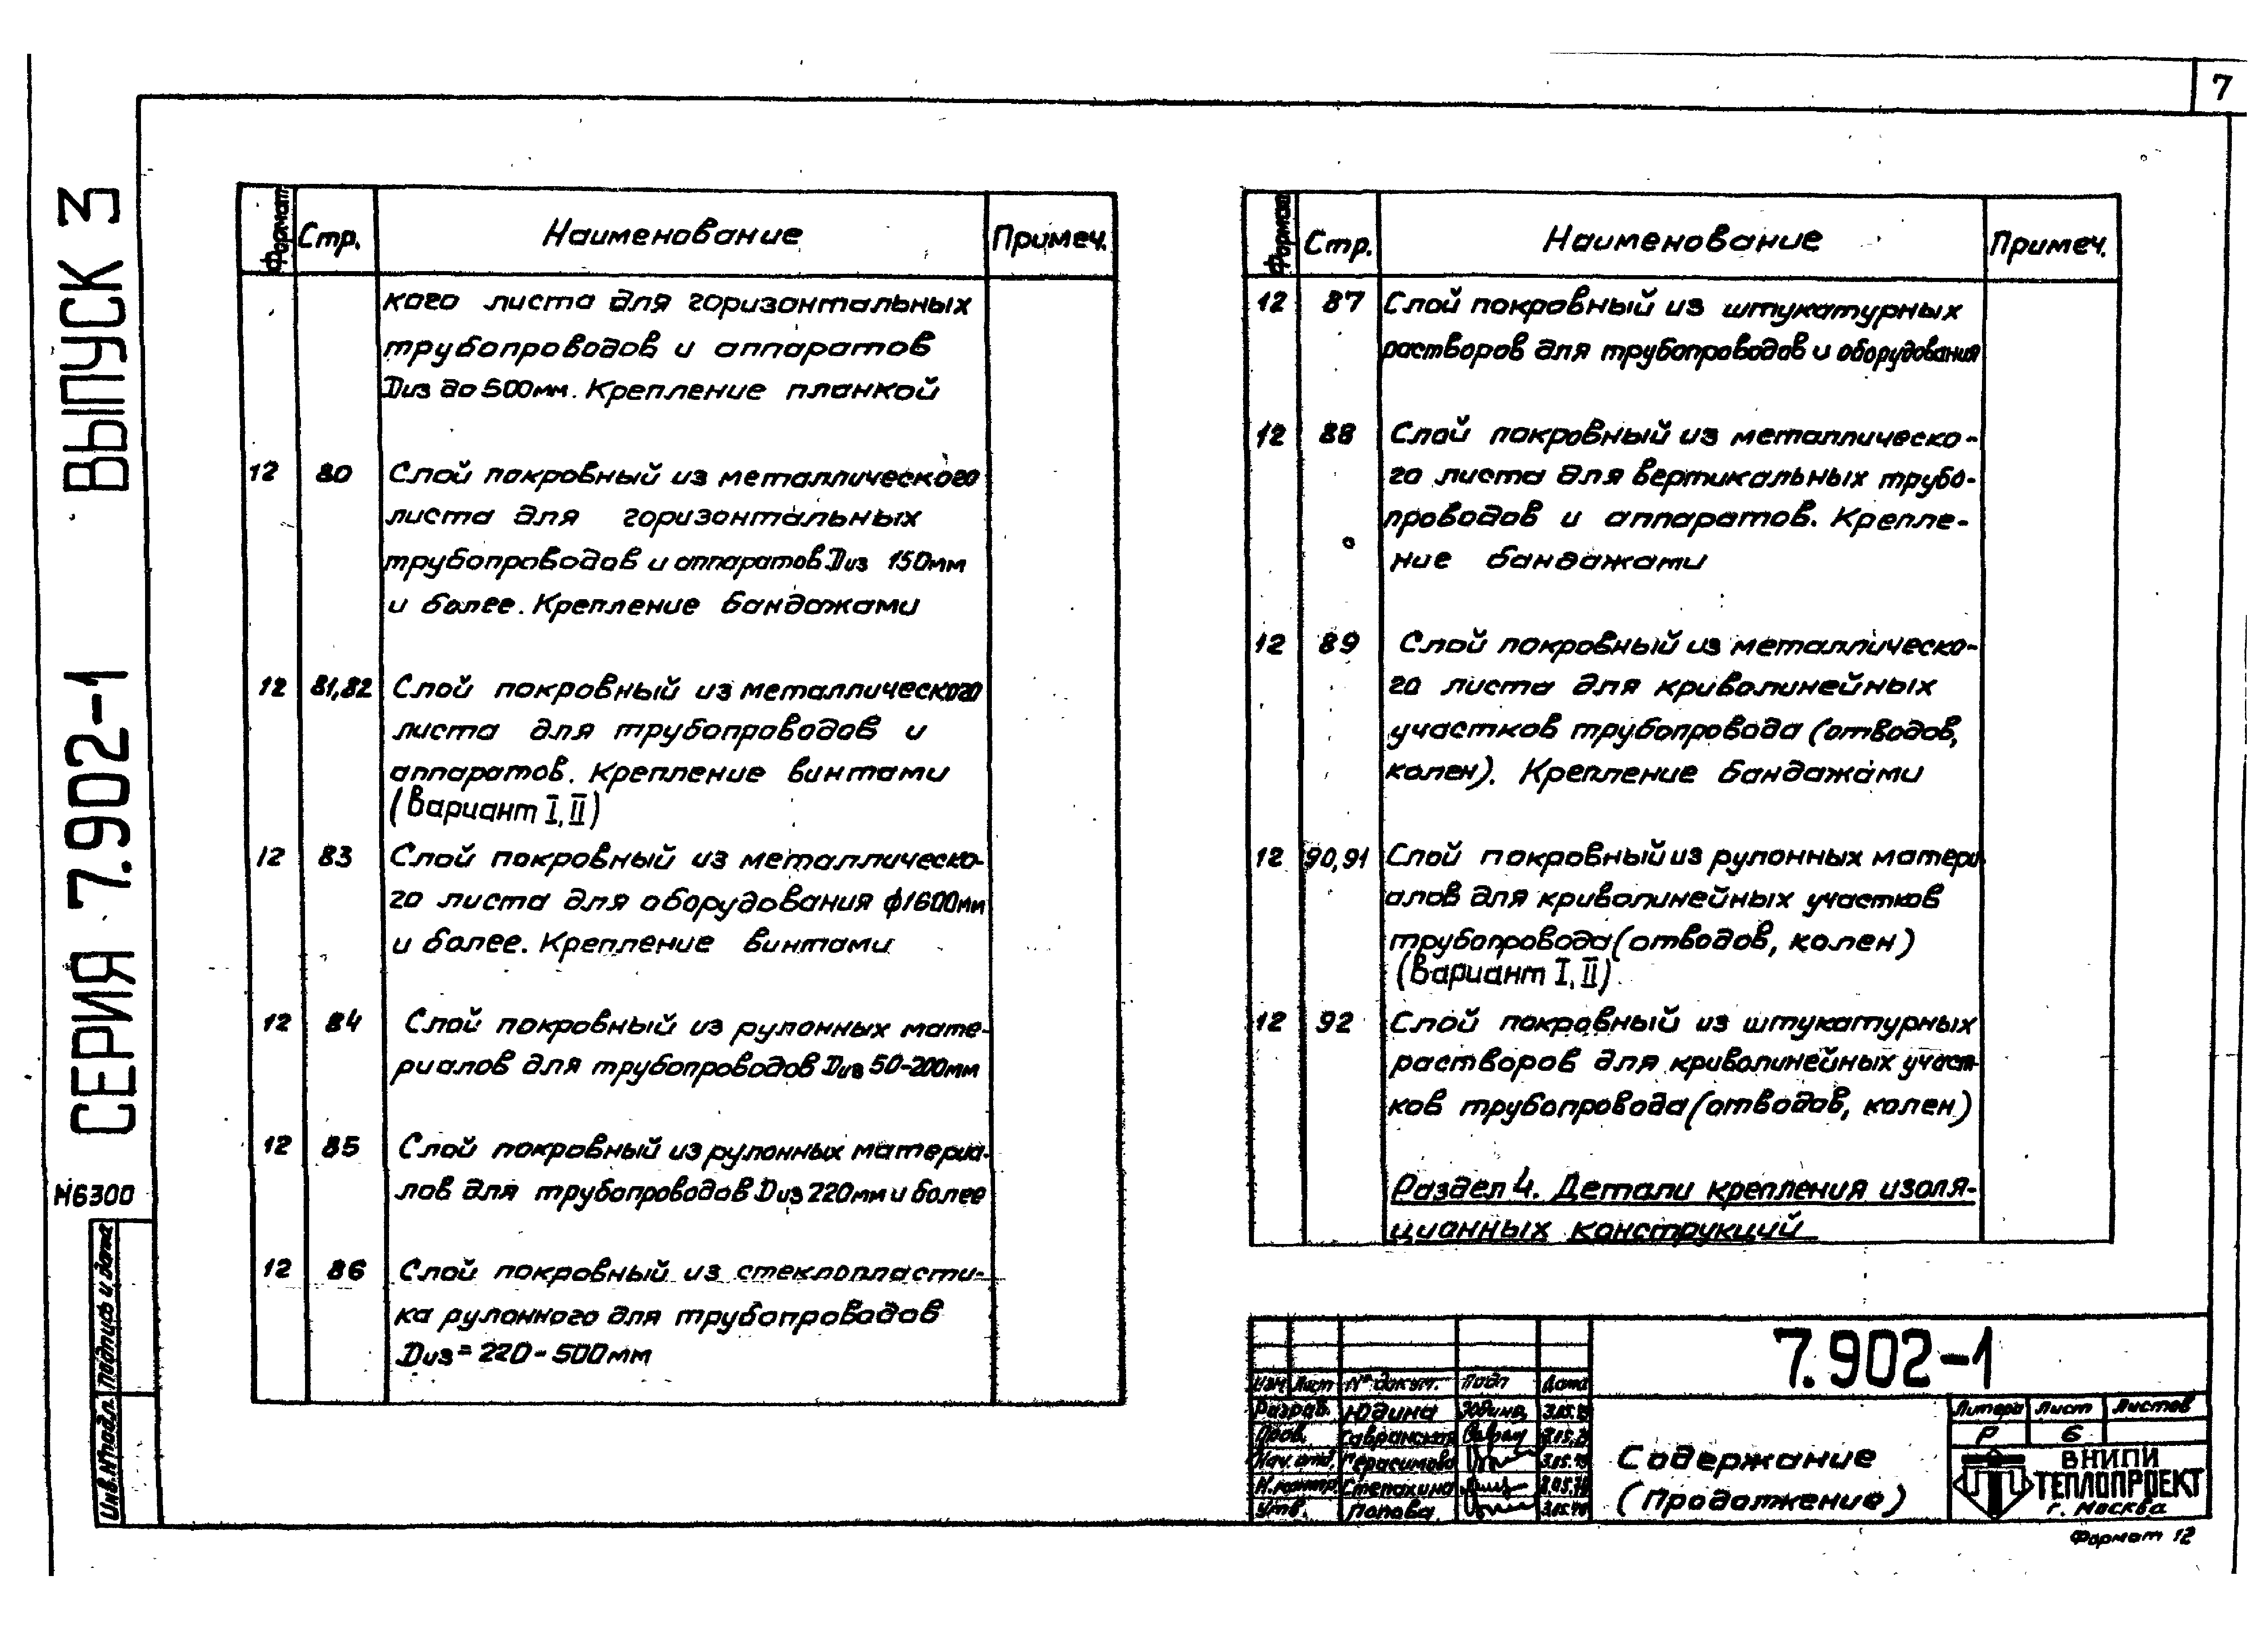 7
СЕРИЯ 7.902-1 ВЫПУСК 3
М6300
Подпись и дата
Инв.№ подл.
Формат Стр. Наименование Примеч.
кого листа для горизонтальных
трубопроводов и аппаратов
Dиз до 500мм. Крепление планкой
12 80 Слой покровный из металлического
листа для горизонтальных
трубопроводов и аппаратов Dиз 150мм
и более. Крепление бандажами
12 81,82 Слой покровный из металлического
листа для трубопроводов и
аппаратов. Крепление винтами
(Вариант I, II)
12 83 Слой покровный из металлическо-
го листа для оборудования ф1600мм
и более. Крепление винтами
12 84 Слой покровный из рулонных мате-
риалов для трубопроводов Dиз 50-200мм
12 85 Слой покровный из рулонных материа-
лов для трубопроводов Dиз 220мм и более
12 86 Слой покровный из стеклопласти-
ка рулонного для трубопроводов
Dиз = 220 - 500мм
Формат Стр. Наименование Примеч.
12 87 Слой покровный из штукатурных
растворов для трубопроводов и оборудования
12 88 Слой покровный из металлическо-
го листа для вертикальных трубо-
проводов и аппаратов. Крепле-
ние бандажами
12 89 Слой покровный из металлическо-
го листа для криволинейных
участков трубопровода (отводов,
колен). Крепление бандажами
12 90,91 Слой покровный из рулонных матери
алов для криволинейных участков
трубопровода (отводов, колен)
(Вариант I, II)
12 92 Слой покровный из штукатурных
растворов для криволинейных участ-
ков трубопровода (отводов, колен)
Раздел 4. Детали крепления изоля-
ционных конструкций
7.902-1
Изм Лист № докум. Подп Дата
Разраб. Юдина Юдина
Пров. Гавранская
Нач. отд. Герасимова
Н. контр. Степахина
Утв. Попова
Содержание
(Продолжение)
Литера Лист Листов
Р 6
ВНИПИ
ТЕПЛОПРОЕКТ
г. Москва
Формат 12